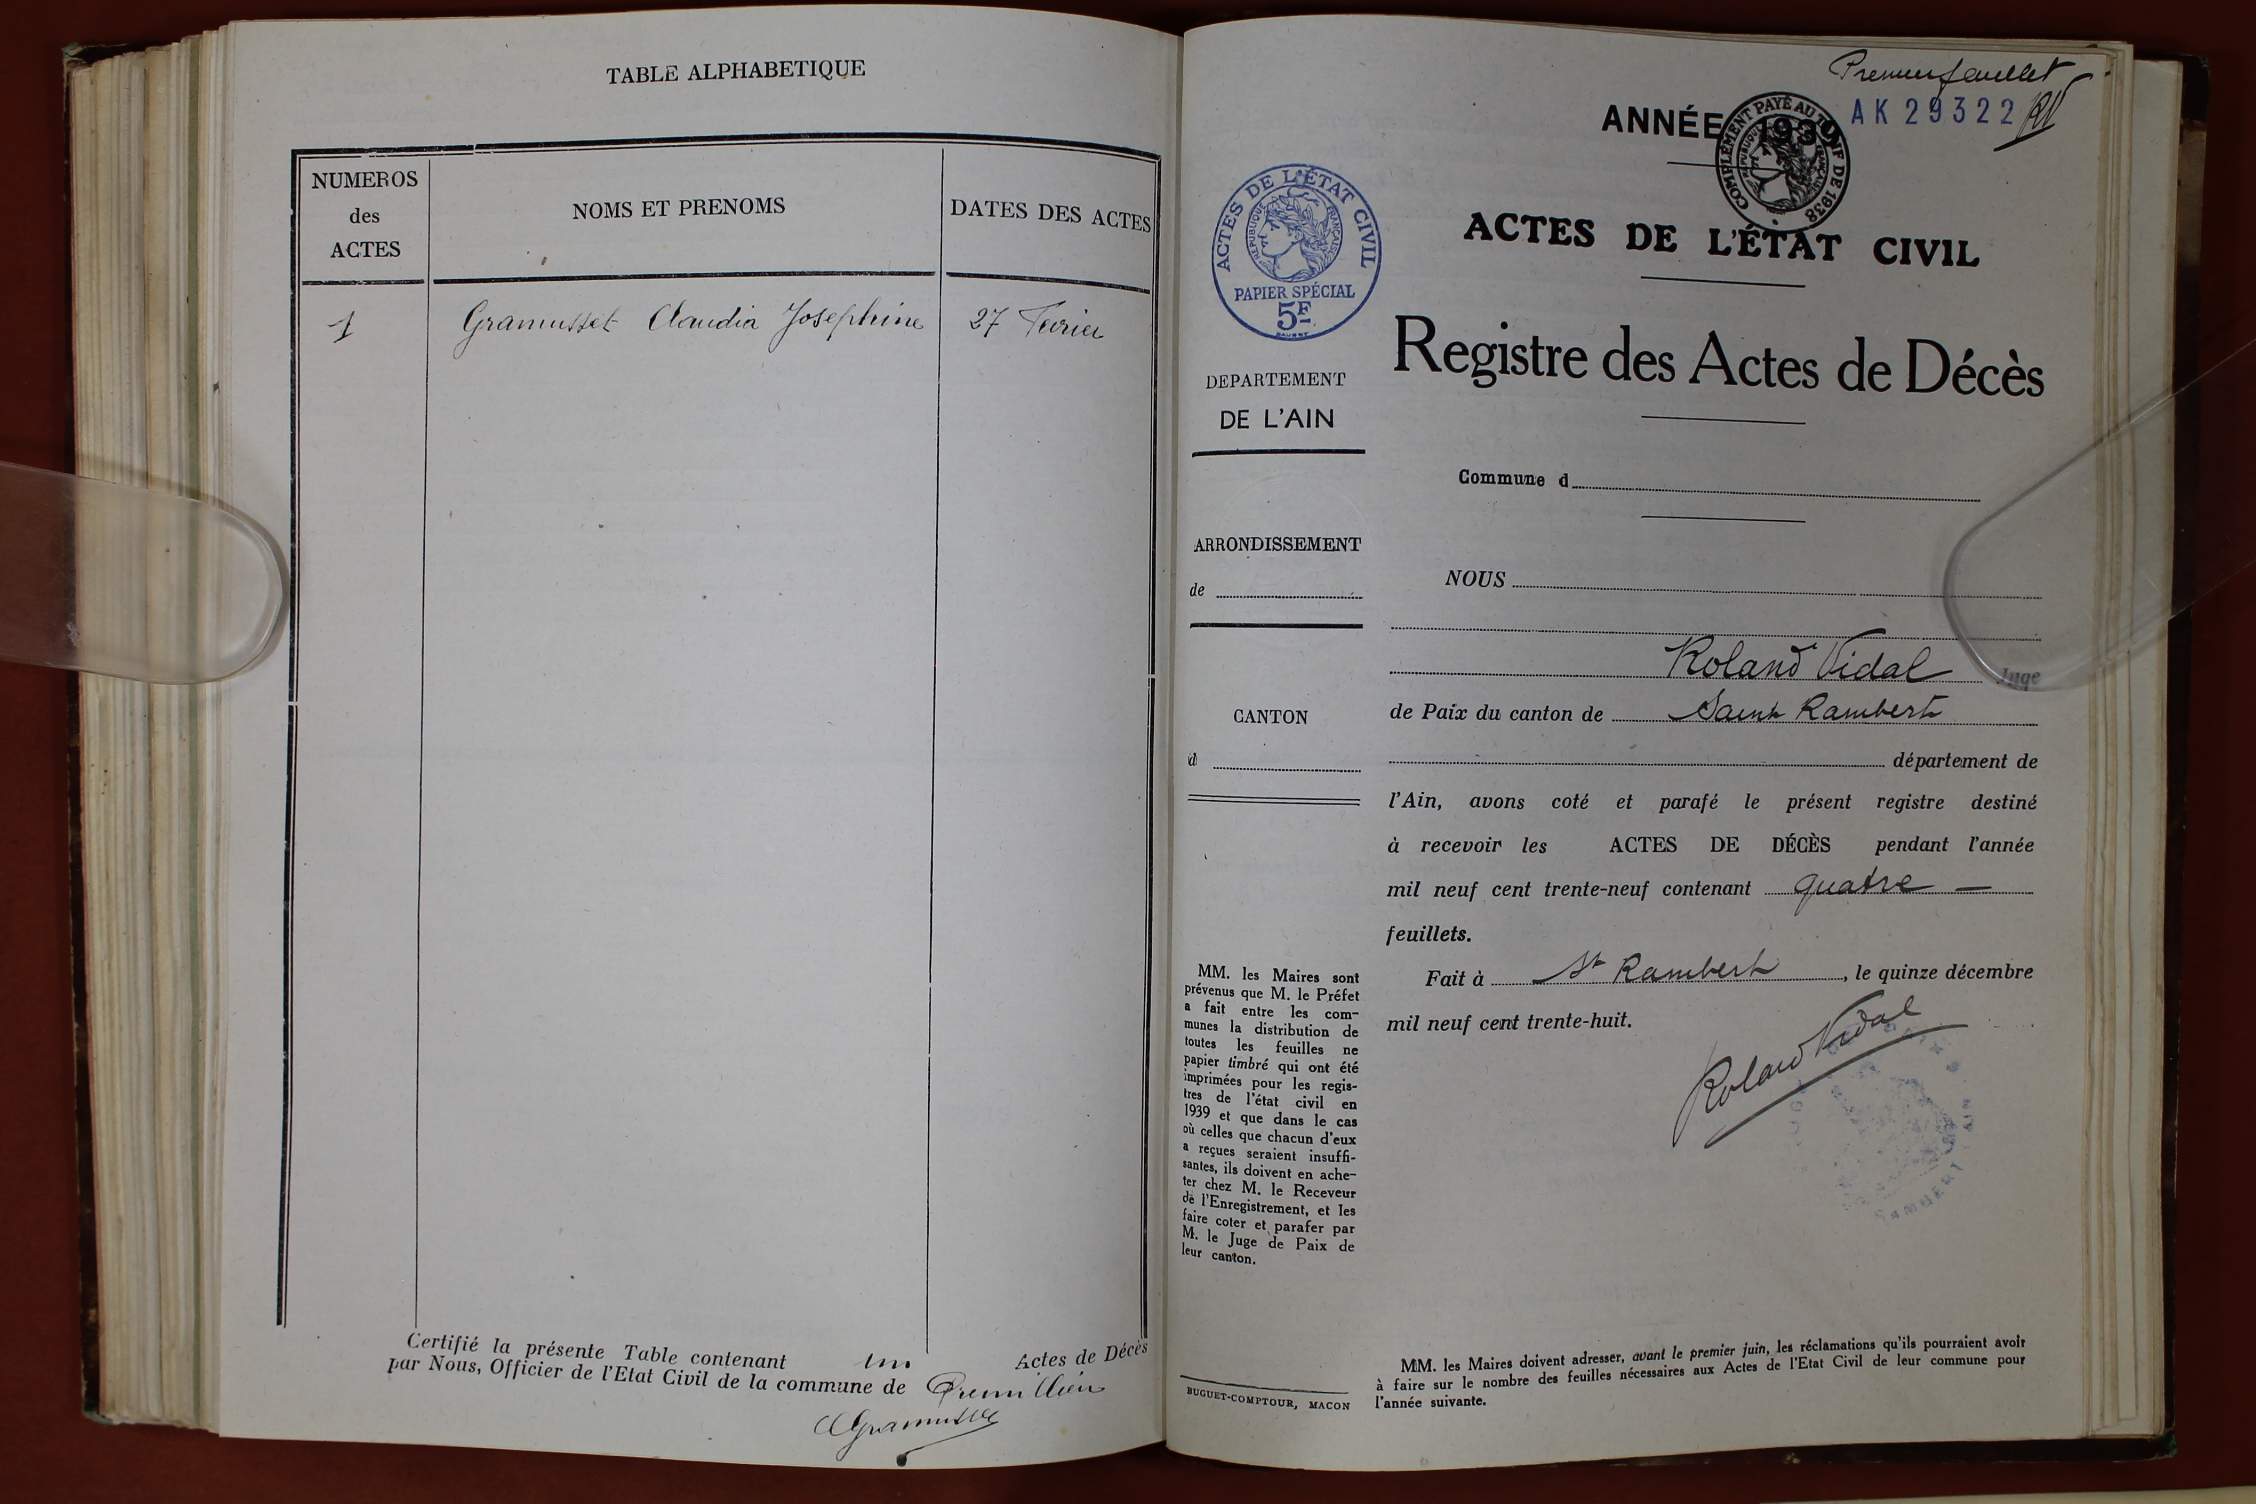 TABLE ALPHABETIQUE
NUMEROS
des
ACTES
NOMS ET PRENOMS
DATES DES ACTES
1
Gramusset Claudia Josephine
27 Fevrier
Certifié la présente Table contenant un Actes de Décès
par Nous, Officier de l'Etat Civil de la commune de Premillieu
Gramusset
Premier feuillet
ANNÉE 1939
AK 29322
RV
COMPLÉMENT PAYÉ AU TARIF DE 1938
RÉPUBLIQUE FRANÇAISE
ACTES DE L'ÉTAT CIVIL
RÉPUBLIQUE FRANÇAISE
PAPIER SPÉCIAL
5F
ACTES DE L'ÉTAT CIVIL
Registre des Actes de Décès
DEPARTEMENT
DE L'AIN
ARRONDISSEMENT
de
CANTON
d
MM. les Maires sont
prévenus que M. le Préfet
a fait entre les com-
munes la distribution de
toutes les feuilles ne
papier timbré qui ont été
imprimées pour les regis-
tres de l'état civil en
1939 et que dans le cas
où celles que chacun d'eux
a reçues seraient insuffi-
santes, ils doivent en ache-
ter chez M. le Receveur
de l'Enregistrement, et les
faire coter et parafer par
M. le Juge de Paix de
leur canton.
BUGUET-COMPTOUR, MACON
Commune d
NOUS
Roland Vidal Juge
de Paix du canton de Saint Rambert
département de
l'Ain, avons coté et parafé le présent registre destiné
à recevoir les ACTES DE DÉCÈS pendant l'année
mil neuf cent trente-neuf contenant quatre —
feuillets.
Fait à St Rambert, le quinze décembre
mil neuf cent trente-huit.
Roland Vidal
MM. les Maires doivent adresser, avant le premier juin, les réclamations qu'ils pourraient avoir
à faire sur le nombre des feuilles nécessaires aux Actes de l'Etat Civil de leur commune pour
l'année suivante.